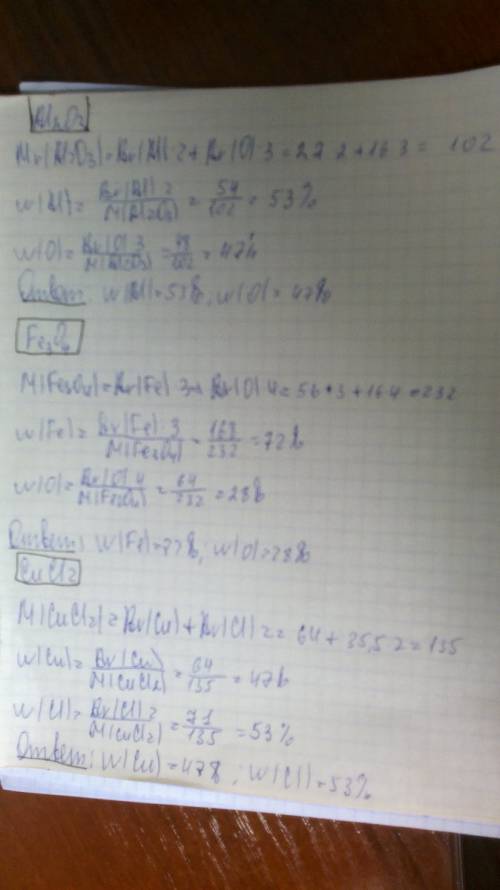 Al₂O₃
Mr(Al₂O₃)=Ar(Al)·2+Ar(O)·3=27·2+16·3= 102
w(Al)= Ar(Al)·2 / M(Al₂O₃) = 54/102 = 53%
w(O)= Ar(O)·3 / M(Al₂O₃) = 48/102 = 47%
Ответ: w(Al)=53%; w(O)=47%
Fe₃O₄
M(Fe₃O₄)=Ar(Fe)·3+Ar(O)·4=56·3+16·4=232
w(Fe)= Ar(Fe)·3 / M(Fe₃O₄) = 168/232 = 72%
w(O)= Ar(O)·4 / M(Fe₃O₄) = 64/232 = 28%
Ответ: w(Fe)=72%; w(O)=28%
CuCl₂
M(CuCl₂)=Ar(Cu)+Ar(Cl)·2=64+35,5·2=135
w(Cu)= Ar(Cu) / M(CuCl₂) = 64/135 = 47%
w(Cl)= Ar(Cl)·2 / M(CuCl₂) = 71/135 = 53%
Ответ: w(Cu)=47%; w(Cl)=53%